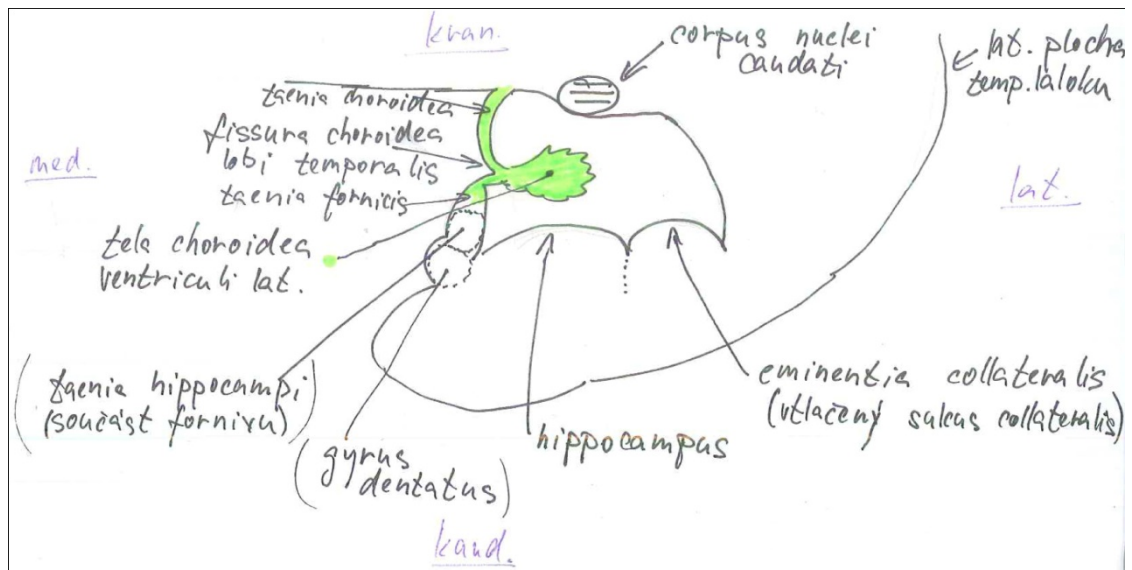 kran.
corpus nuclei
caudati
lat. plocha
temp. laloku
taenia choroidea
fissura choroidea
lobi temporalis
taenia fornicis
med.
lat.
tela choroidea
ventriculi lat.
(taenia hippocampi
(součást fornixu))
(gyrus
dentatus)
hippocampus
eminentia collateralis
(vtlačený sulcus collateralis)
kaud.